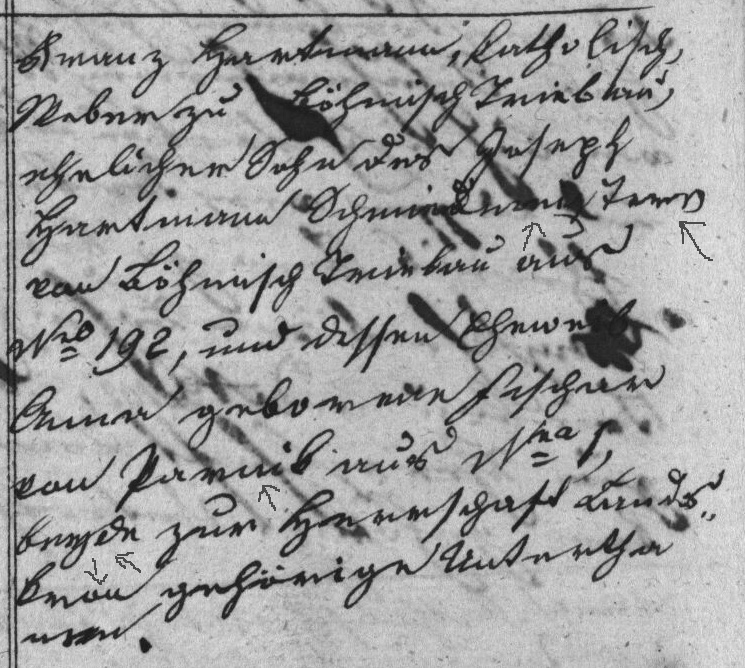 Franz Hartmann, katholisch,
Weber zu Böhmisch Triebau,
ehelicher Sohn des Joseph
Hartmann Schmied
von Böhmisch Triebau aus
Nro 192, und dessen Eheweib
Anna geborene Fischer
von Parnik aus Nro 1,
beyde zur Herrschaft Lands„
kron gehörige Untertha
nen.